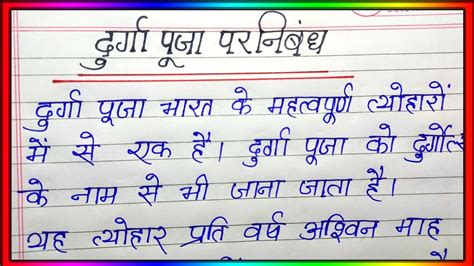 दुर्गा पूजा पर निबंध
दुर्गा पूजा भारत के महत्वपूर्ण त्योहारों
में से एक है। दुर्गा पूजा को
के नाम से भी जाना जाता है।
यह त्योहार प्रति वर्ष अश्विन माह